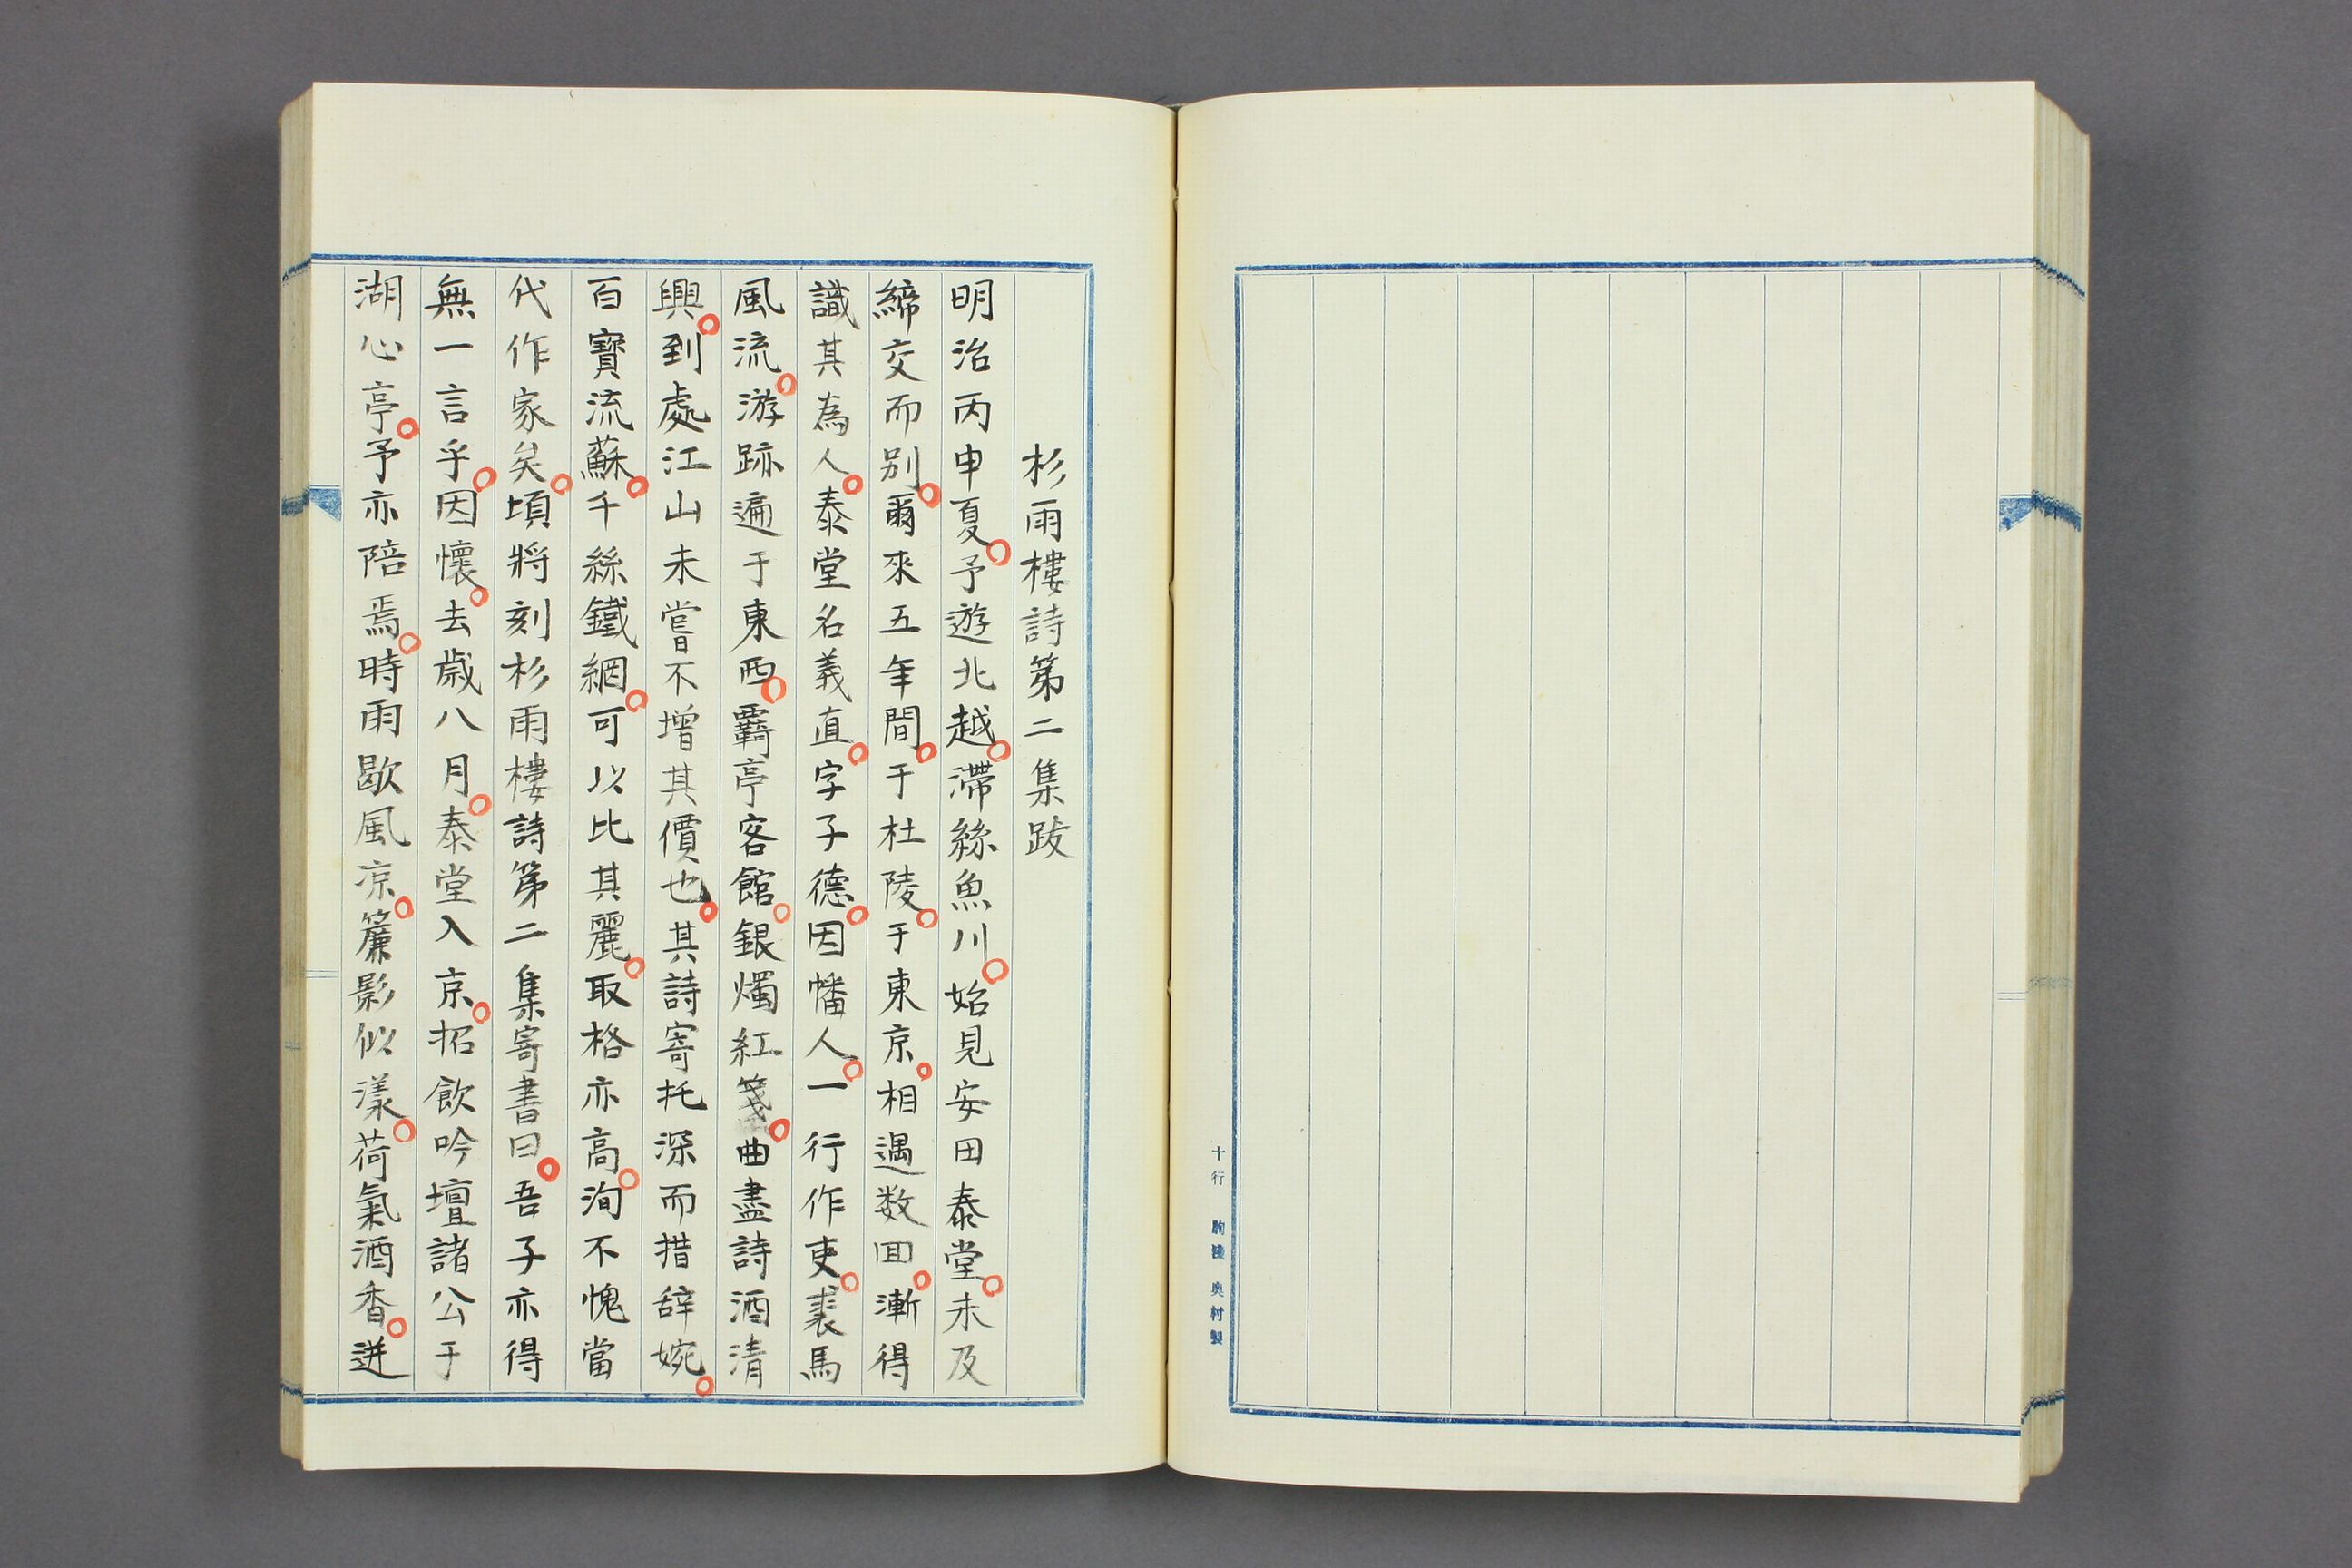 杉雨樓詩第二集跋
明治丙申夏。予遊北越。滯絲魚川。始見安田泰堂。未及
締交而別。爾來五年間。于杜陵。于東京。相遇数回。漸得
識其為人。泰堂名義直。字子德。因幡人。一行作吏。裘馬
風流。游跡遍于東西。覇亭客館。銀燭紅箋。曲盡詩酒清
興。到處江山未嘗不增其價也。其詩寄托深而措辞婉。
百寶流蘇。千絲鐵網。可以比其麗。取格亦高。洵不愧當
代作家矣。頃將刻杉雨樓詩第二集寄書曰。吾子亦得
無一言乎。因懷。去歳八月。泰堂入京。招飲吟壇諸公于
湖心亭。予亦陪焉。時雨歇風凉。簾影似漾。荷氣酒香。迸
十行 奥村製